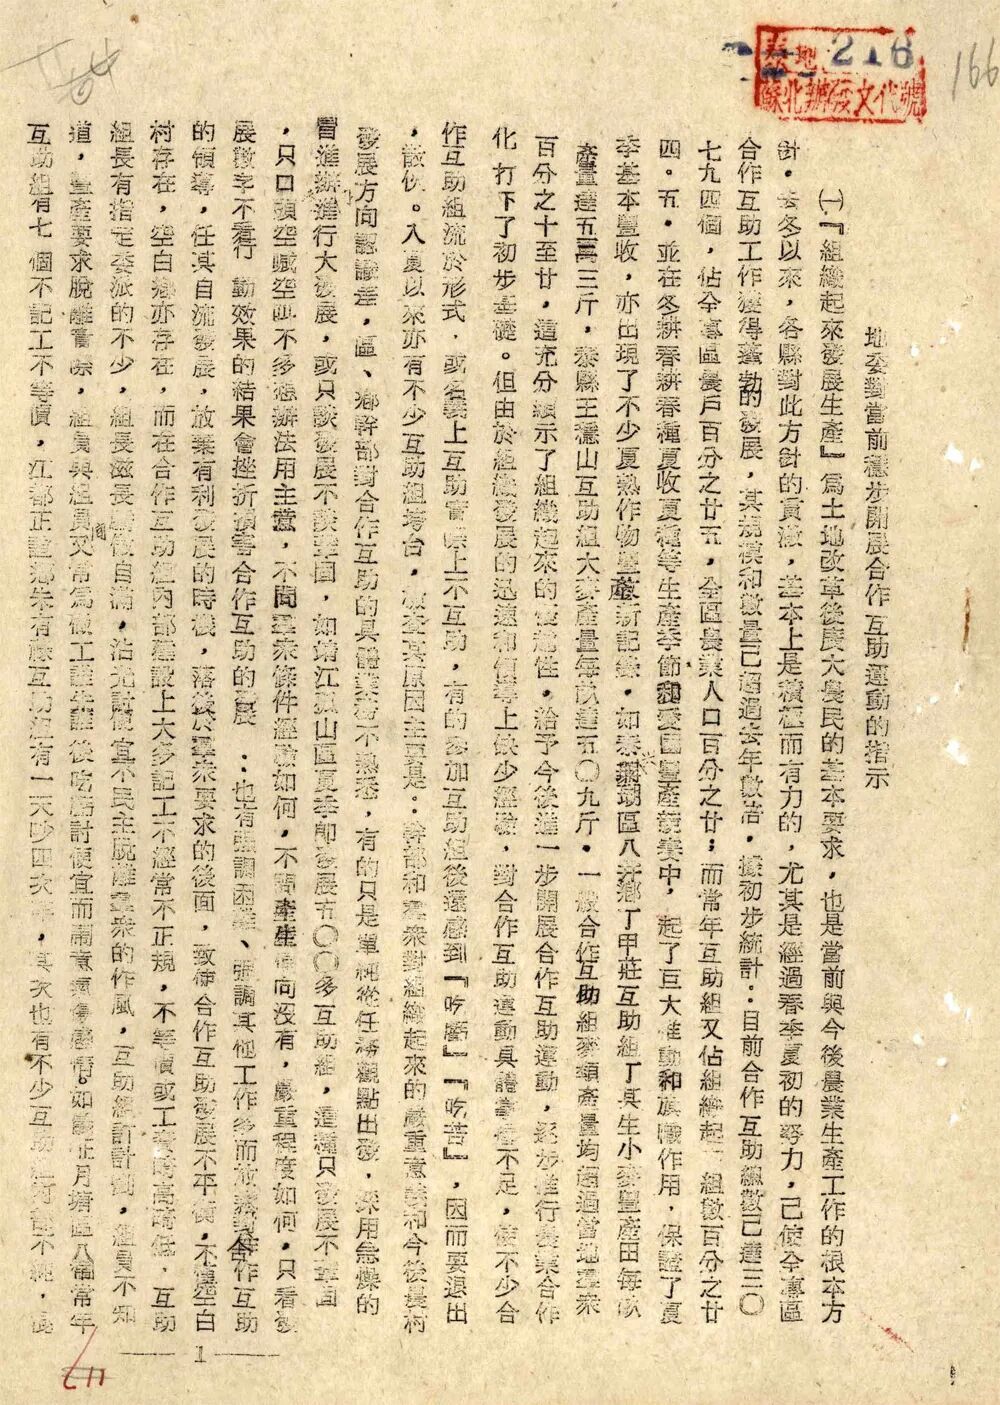 216
蘇北辦發文代號
166
地委對當前穩步開展合作互助運動的指示
㈠『組織起來發展生產』為土地改革後廣大農民的基本要求，也是當前與今後農業生產工作的根本方
針。去冬以來，各縣對此方針的貫澈，基本上是積極而有力的，尤其是經過春季夏初的努力，已使全專區
合作互助工作獲得蓬勃的發展，其規模和數量已超過去年數倍。據初步統計：目前合作互助組數已達三〇
七九四個，佔全專區農戶百分之廿五，全區農業人口百分之廿；而常年互助組又佔組織起 組數百分之廿
四。五。並在冬耕春耕春種夏收夏種等生產季節和愛國豐產競賽中，起了巨大推動和旗幟作用，保證了夏
季基本豐收，亦出現了不少夏熟作物豐產新記錄。如泰縣 湖區八井鄉丁甲莊互助組丁具生小麥豐產田每畝
產量達五百三斤，泰縣王穩山互助組大麥產量每畝達五〇九斤。一般合作互助組麥類產量均超過當地羣眾
百分之十至廿，這充分顯示了組織起來的優越性，給予今後進一步開展合作互助運動，逐步推行農業合作
化 打下了初步基礎。但由於組織發展的迅速和領導上缺少經驗，對合作互助運動具體 不足，使不少合
作互助組流於形式，或名義上互助實際上不互助，有的參加互助組後還感到『吃虧』『吃苦』，因而要退出
，散伙。入夏以來亦有不少互助組垮台，檢查其原因主要是：幹部和羣眾對組織起來的嚴重意義和今後農村
發展方向認識差，區、鄉幹部對合作互助的具體業務不熟悉，有的只是單純從任務觀點出發，採用急燥的
冒進辦 進行大發展，或只談發展不談鞏固，如靖江孤山區夏季即發展五〇〇多互助組，這種只發展不鞏固
，只口頭空喊空叫不多想辦法用主意，不問羣眾條件經驗如何，不問產生偏向沒有，嚴重程度如何，只看發
展數字不看行 動效果的結果會挫折損害合作互助的發展 ：也有強調困難、強調其他工作多而放棄對合作互助
的領導，任其自流發展，放棄有利發展的時機，落後於羣眾要求的後面，致使合作互助發展不平衡，不僅空白
村存在，空白鄉亦存在，而在合作互助組內部建設上大多記工不經常不正規，不等價或工 高 低，互助
組長有指定委派的不少，組長滋長 傲自滿，沾光討便宜不民主脫離羣眾的作風，互助組訂計劃，組員不知
道，豐產要求脫離實際，組員與組員間又常為做工誰先誰後吃虧討便宜而鬧意見 感情。如 正月塘區八個常年
互助組有七個不記工不等價，江都正誼鄉朱有 互助組有一天吵四次 ，其次也有不少互助組 不純，
1